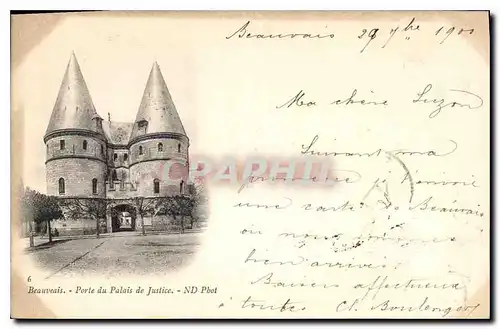 Beauvais 29 7bre 1900
Ma chère Suzon
Suivant ma
promesse je t'envoie
une carte de Beauvais
où nous sommes
bien arrivés.
Baisers affectueux
à toutes Cl. Boulenger
CPARAMA
6
Beauvais. - Porte du Palais de Justice. - ND Phot